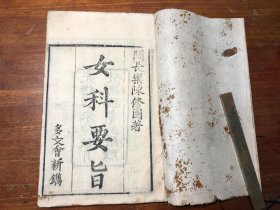 閩長樂陳修園著
女科要旨
多文會新鐫